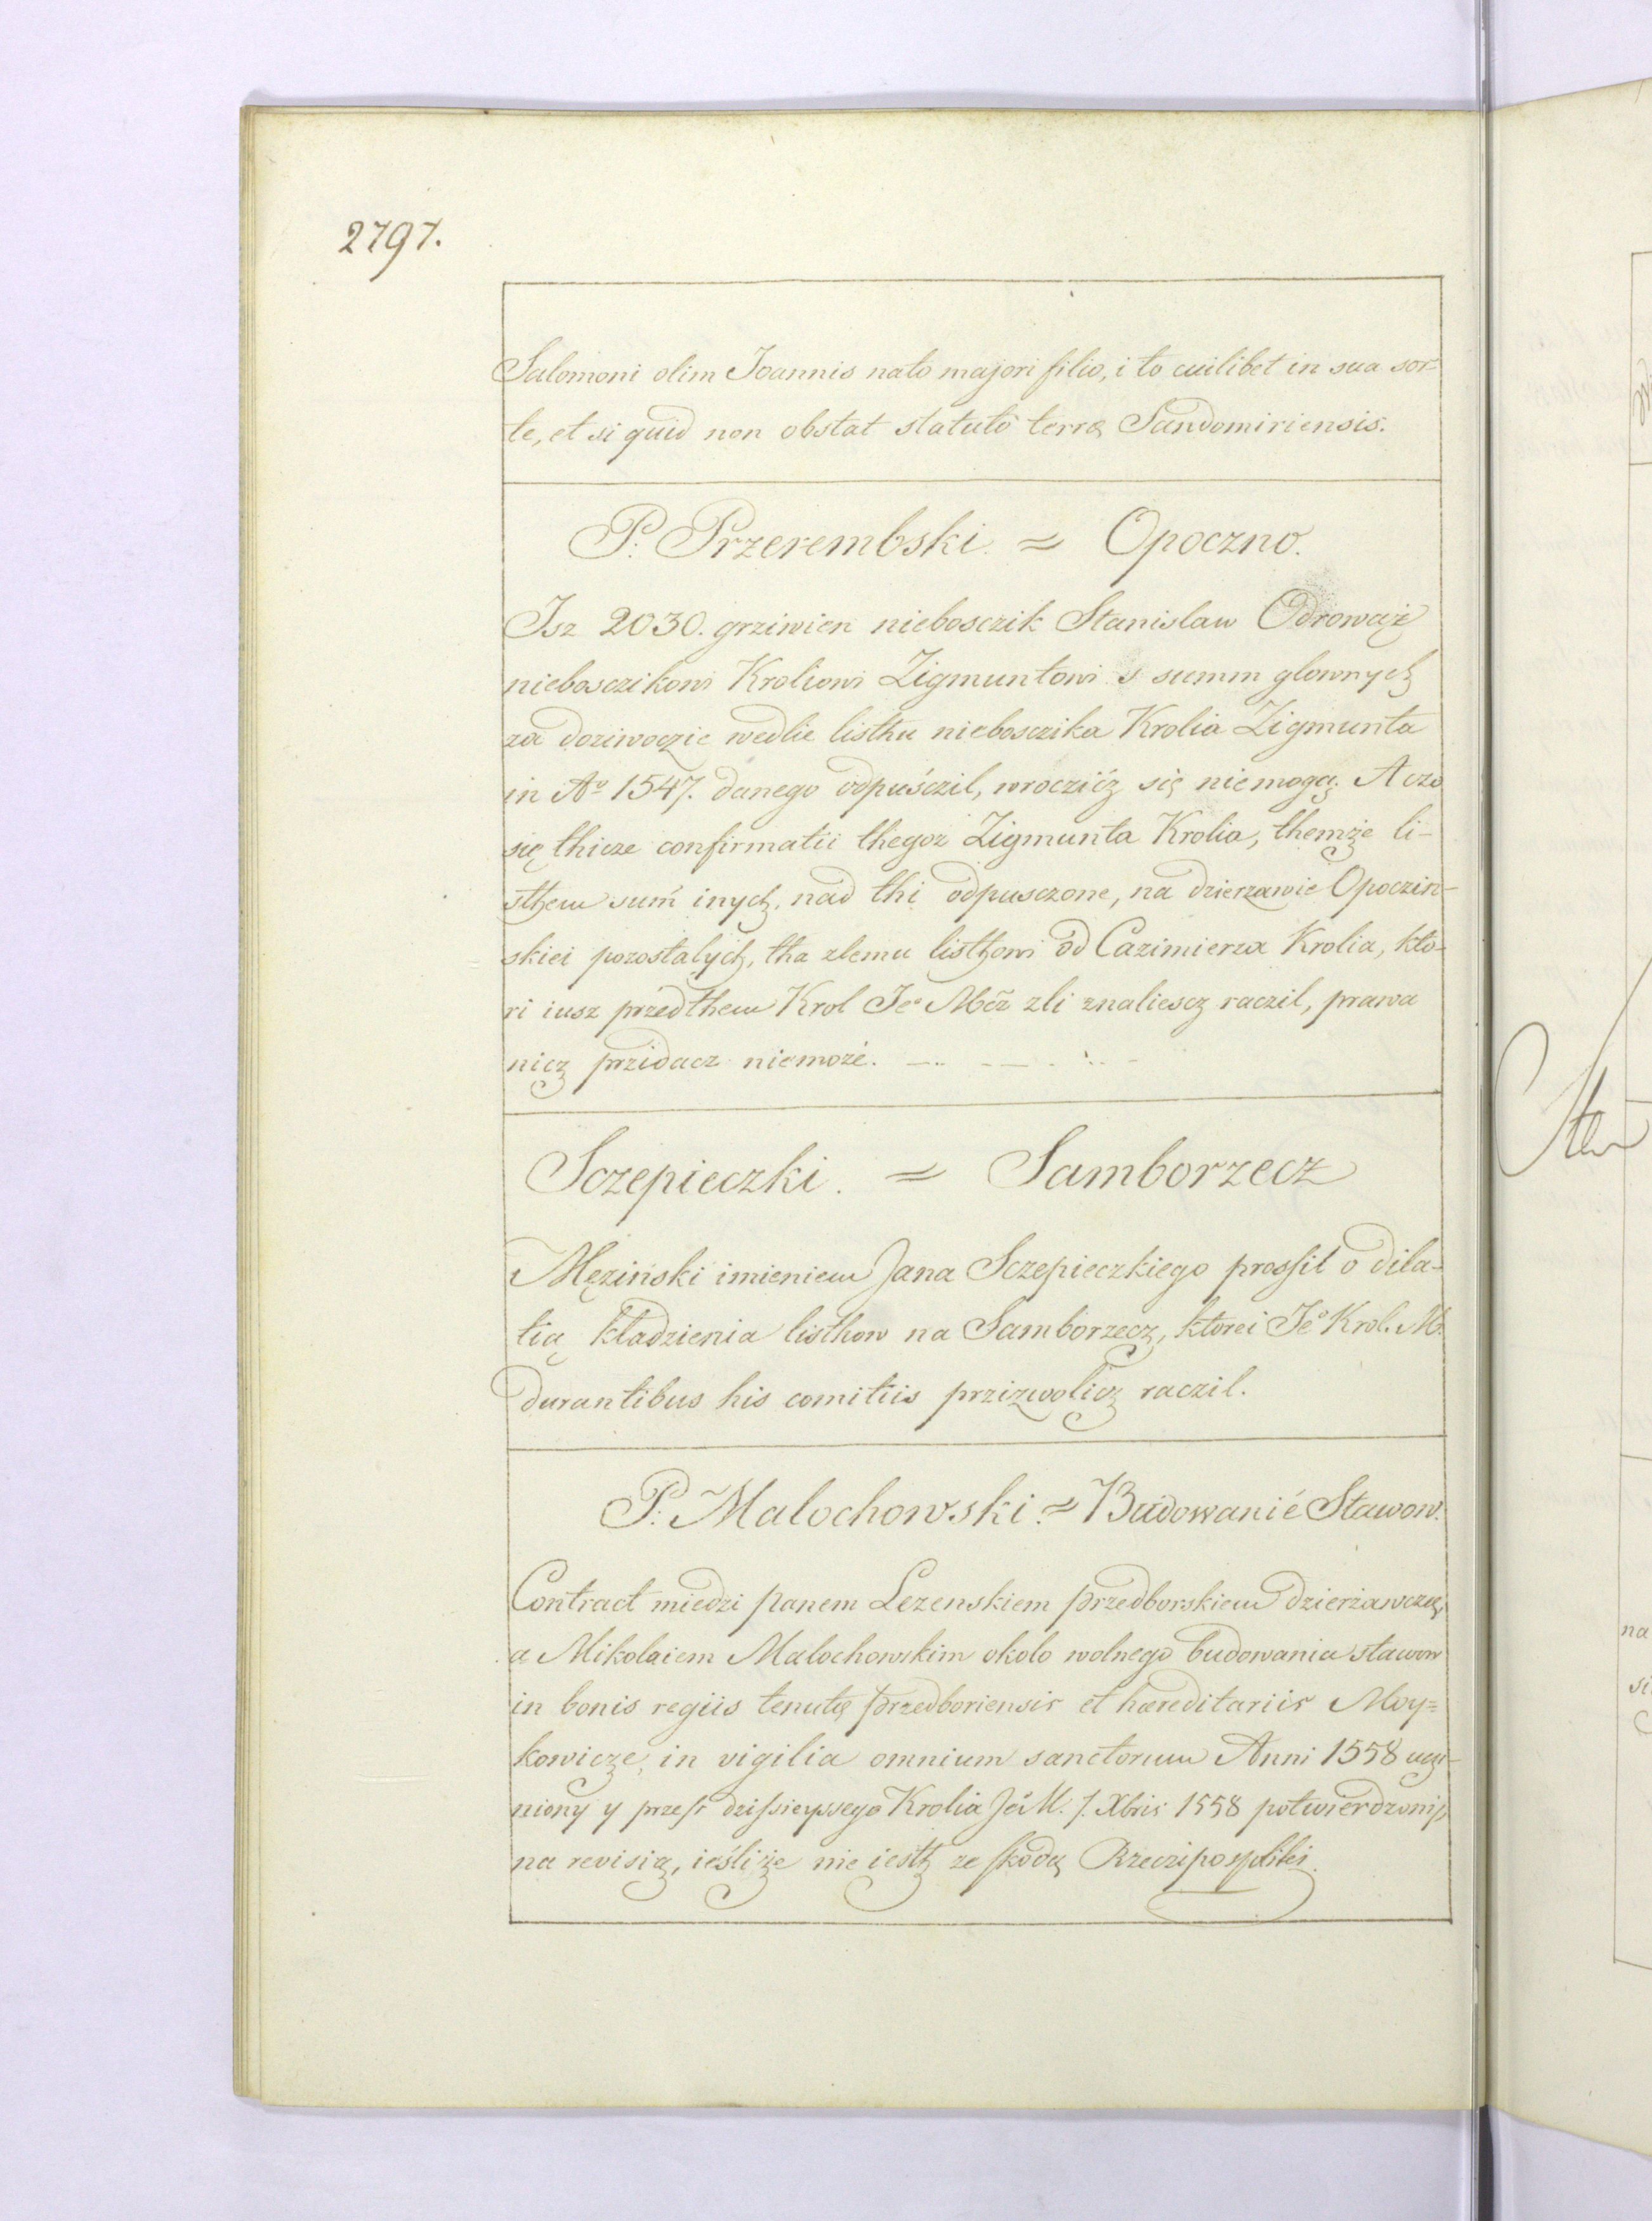 2797.
Salomoni olim Joannis nato majori filio, i to cuilibet in sua sor=
te, et si quid non obstat statuto terrę Sandomiriensis.
P. Przerembski. = Opoczno.
Jsz 2030. grziwien niebosczik Stanislaw Odrowąż
niebosczikowi Kroliowi Zigmuntowi s summ glownych
za doziwoczie wedlie listhu niebosczika Krolia Zigmunta
in Aº 1547. danego odpuśczil, wroczićz się niemogą. A czo
się thicze confirmatii thegoz Zigmunta Krolia, themże li-
sthem sum̃ inych, nad thi odpusczone, na dzierzawie Opoczin-
skiei pozostalych, tha zlemu listhowi od Cazimierza Krolia, kto-
ri iusz przedthem Krol Jeº Mcz̃ zli znaliescz raczil, prawa
nicz przidacz niemoże. — .. — — . ·. . –
Sczepieczki. = Samborzecz
Męziński imieniem Jana Sczepieczkiego prossil o dila-
tią kładzienia listhow na Samborzecz, ktorei Jeº Krol. M.
durantibus his comitiis przizwolicz raczil.
P. Malochowski. = Budowanié Stawow.
Contract miedzi panem Lezenskiem przedborskiem dzierżawczą,
a Mikolaiem Malochowskim okolo wolnego budowania stawow
in bonis regiis tenutę przedboriensis et hæreditariis Moy=
kowicze, in vigilia omnium sanctorum Anni 1558 uczi-
niony y przess dzissieyssego Krolia Jº M. 1. Xbris 1558 potwierdzoni,
na revisią, ieśliże nie iesth ze skodą Rzeczipospolitei.